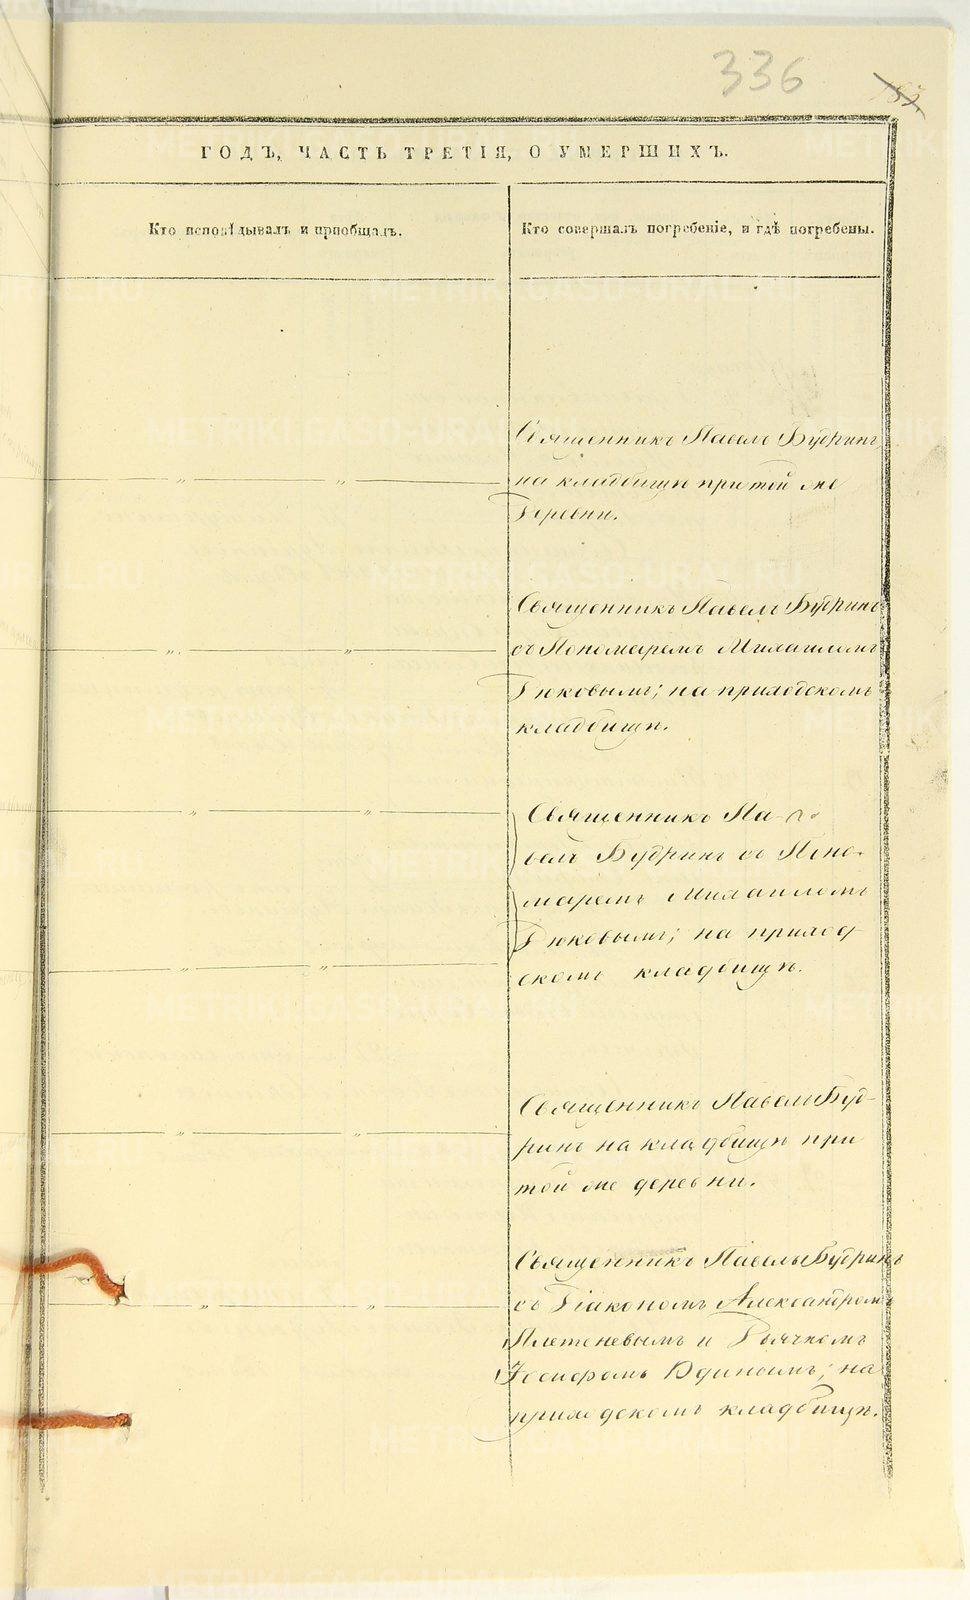 336
ГОДЪ, ЧАСТЬ ТРЕТІЯ, О УМЕРШИХЪ.
Кто исповѣдывалъ и пріобщалъ.
Кто совершалъ погребеніе, и гдѣ погребены.
Священникъ Павелъ Будринъ,
на кладбищѣ при той же
деревни.
Священникъ Павелъ Будринъ
съ Пономаремъ Михаиломъ
на приходскомъ
кладбищѣ.
Священникъ Па-
велъ Будринъ съ Поно-
маремъ Михаиломъ
на приход-
скомъ кладбищѣ.
Священникъ Павелъ Буд-
ринъ на кладбищѣ при
той же деревни.
Священникъ Павелъ Будринъ
съ Діакономъ Александромъ
Плетеневымъ и Дьячкомъ
Іосифомъ на
приходскомъ кладбищѣ.
METRIKI.GASO-URAL.RU